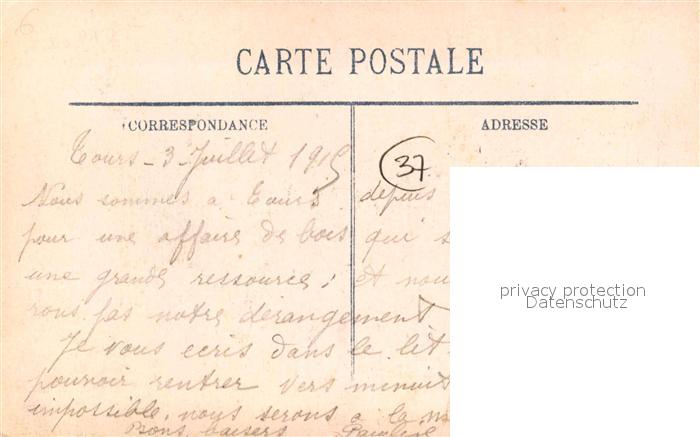 CARTE POSTALE
CORRESPONDANCE
ADRESSE
Tours - 3 - Juillet 1915
37
Nous sommes a Tours depuis
pour une affaire de bois qui s
une grande ressource; et nou
rons pas notre dérangement
Je vous ecris dans le lit
pouvoir rentrer vers minuit
impossible. nous serons a la m
Bons baisers
privacy protection
Datenschutz